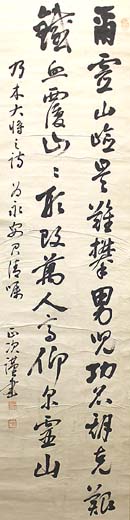 爾靈山嶮豈難攀男児功名期克艱
鐵血覆山々形改萬人齊仰尓靈山
乃木大将之詩 為永安君清嘱 正次謹書